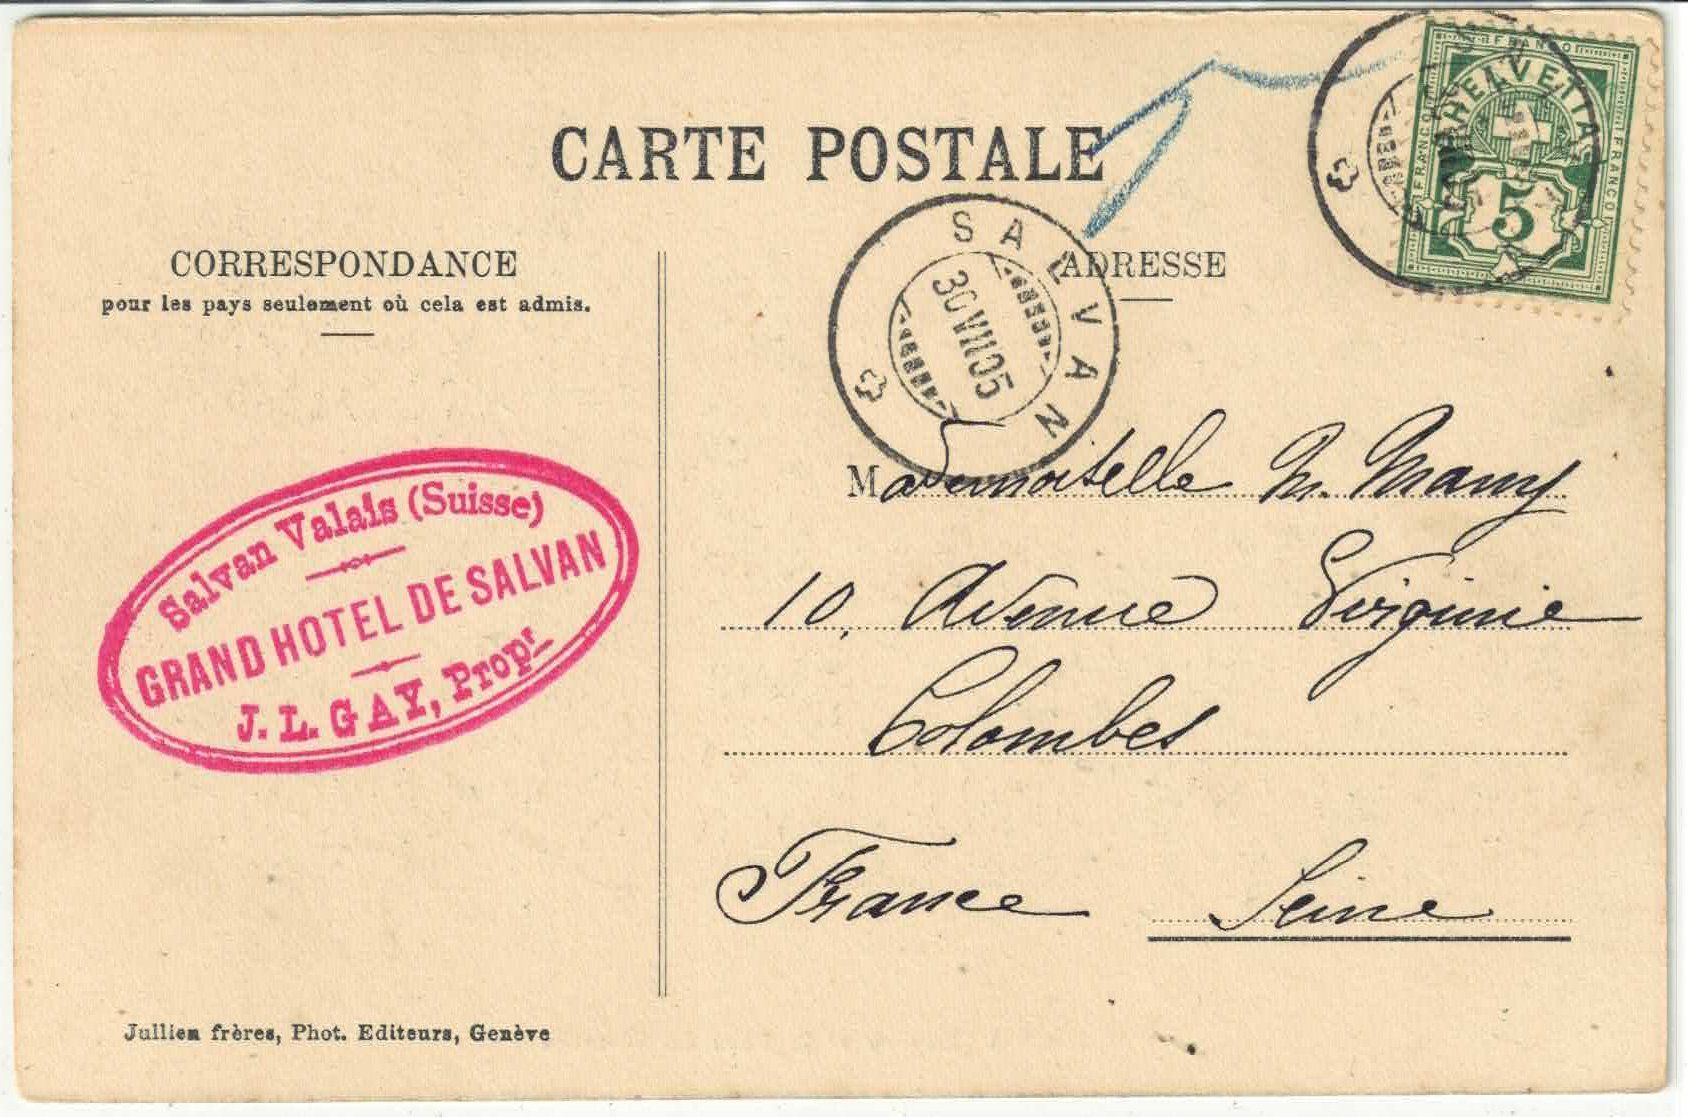 CARTE POSTALE
CORRESPONDANCE
pour les pays seulement où cela est admis.
ADRESSE
FRANCO
HELVETIA
FRANCO
FRANCO
5
SALVAN
30 VII 05
Salvan Valais (Suisse)
GRAND HOTEL DE SALVAN
J. L. GAY, Propr
Mademoiselle M. Mamy
10, Avenue Virginie
Colombes
France Seine
Jullien frères, Phot. Editeurs, Genève